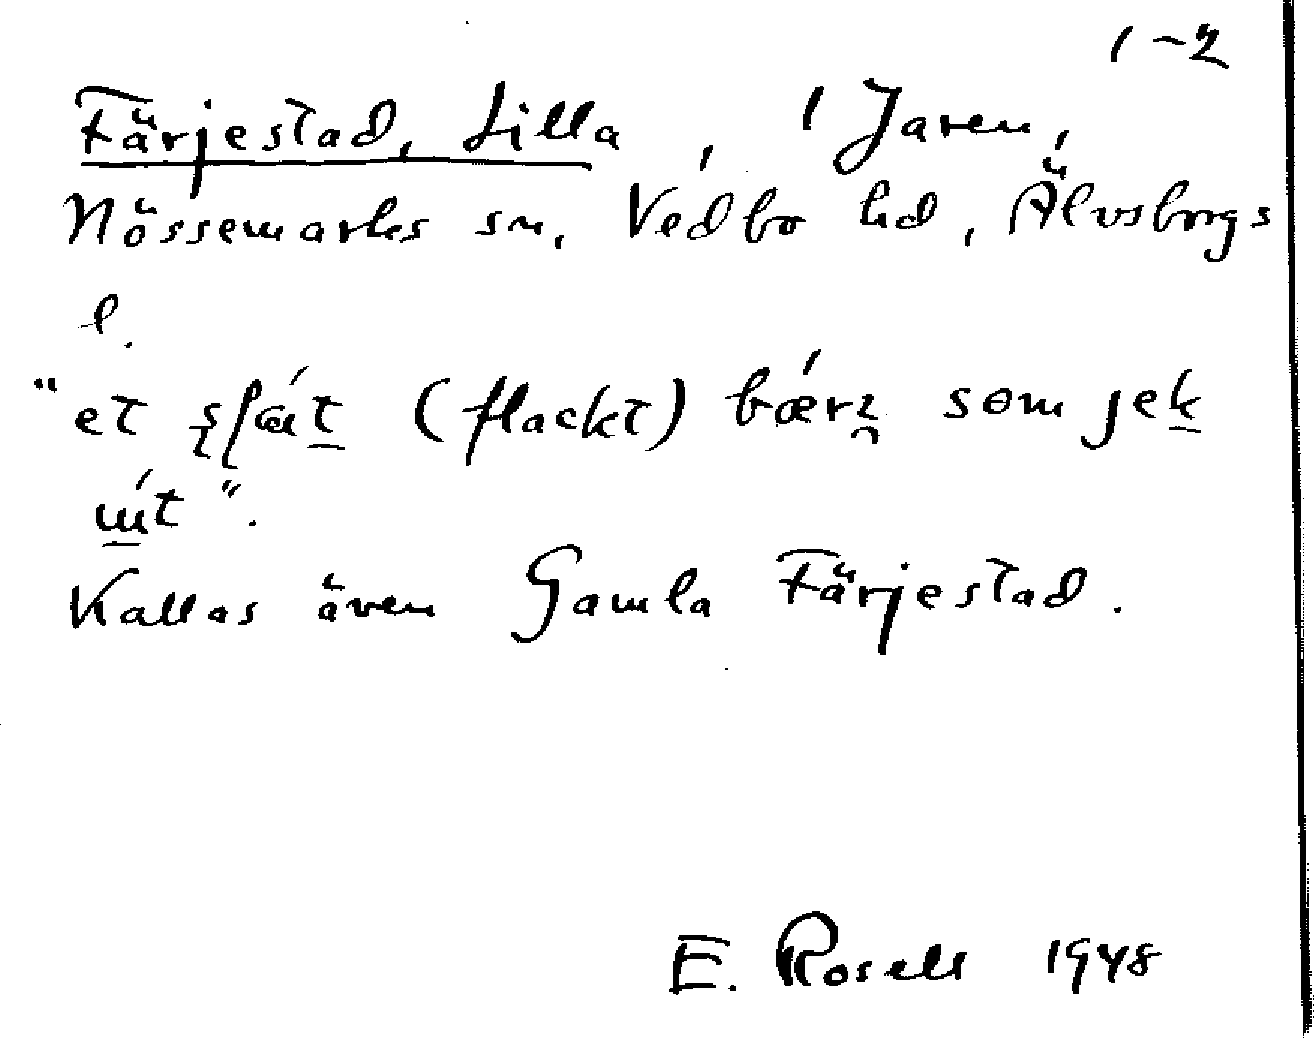 1-2
Färjestad, Lilla, i Jaren,
Nössemarks sn, Vedbo hd, Älvsborgs
l.
"et (flackt) som jek
Kallas även Gamla Färjestad.
E. Rosell 1948